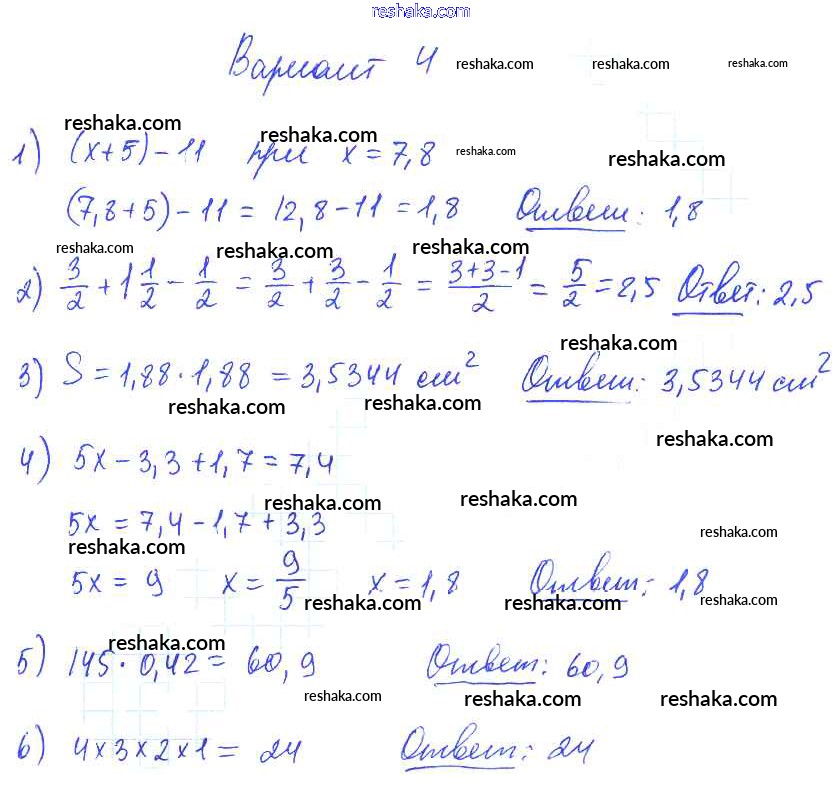 reshaka.com
Вариант 4 reshaka.com reshaka.com reshaka.com
reshaka.com reshaka.com
1) (x+5)-11 при x=7,8 reshaka.com reshaka.com
(7,8+5)-11=12,8-11=1,8 Ответ: 1,8
reshaka.com reshaka.com reshaka.com
2) 3/2 + 1 1/2 - 1/2 = 3/2 + 3/2 - 1/2 = (3+3-1)/2 = 5/2 = 2,5 Ответ: 2,5
reshaka.com
3) S=1,88·1,88=3,5344 см² Ответ: 3,5344 см²
reshaka.com reshaka.com
reshaka.com
4) 5x-3,3+1,7=7,4
reshaka.com reshaka.com
5x=7,4-1,7+3,3
reshaka.com reshaka.com
5x=9 x=9/5 x=1,8 Ответ: 1,8
reshaka.com reshaka.com reshaka.com
reshaka.com
5) 145·0,42=60,9 Ответ: 60,9
reshaka.com reshaka.com reshaka.com
6) 4×3×2×1=24 Ответ: 24